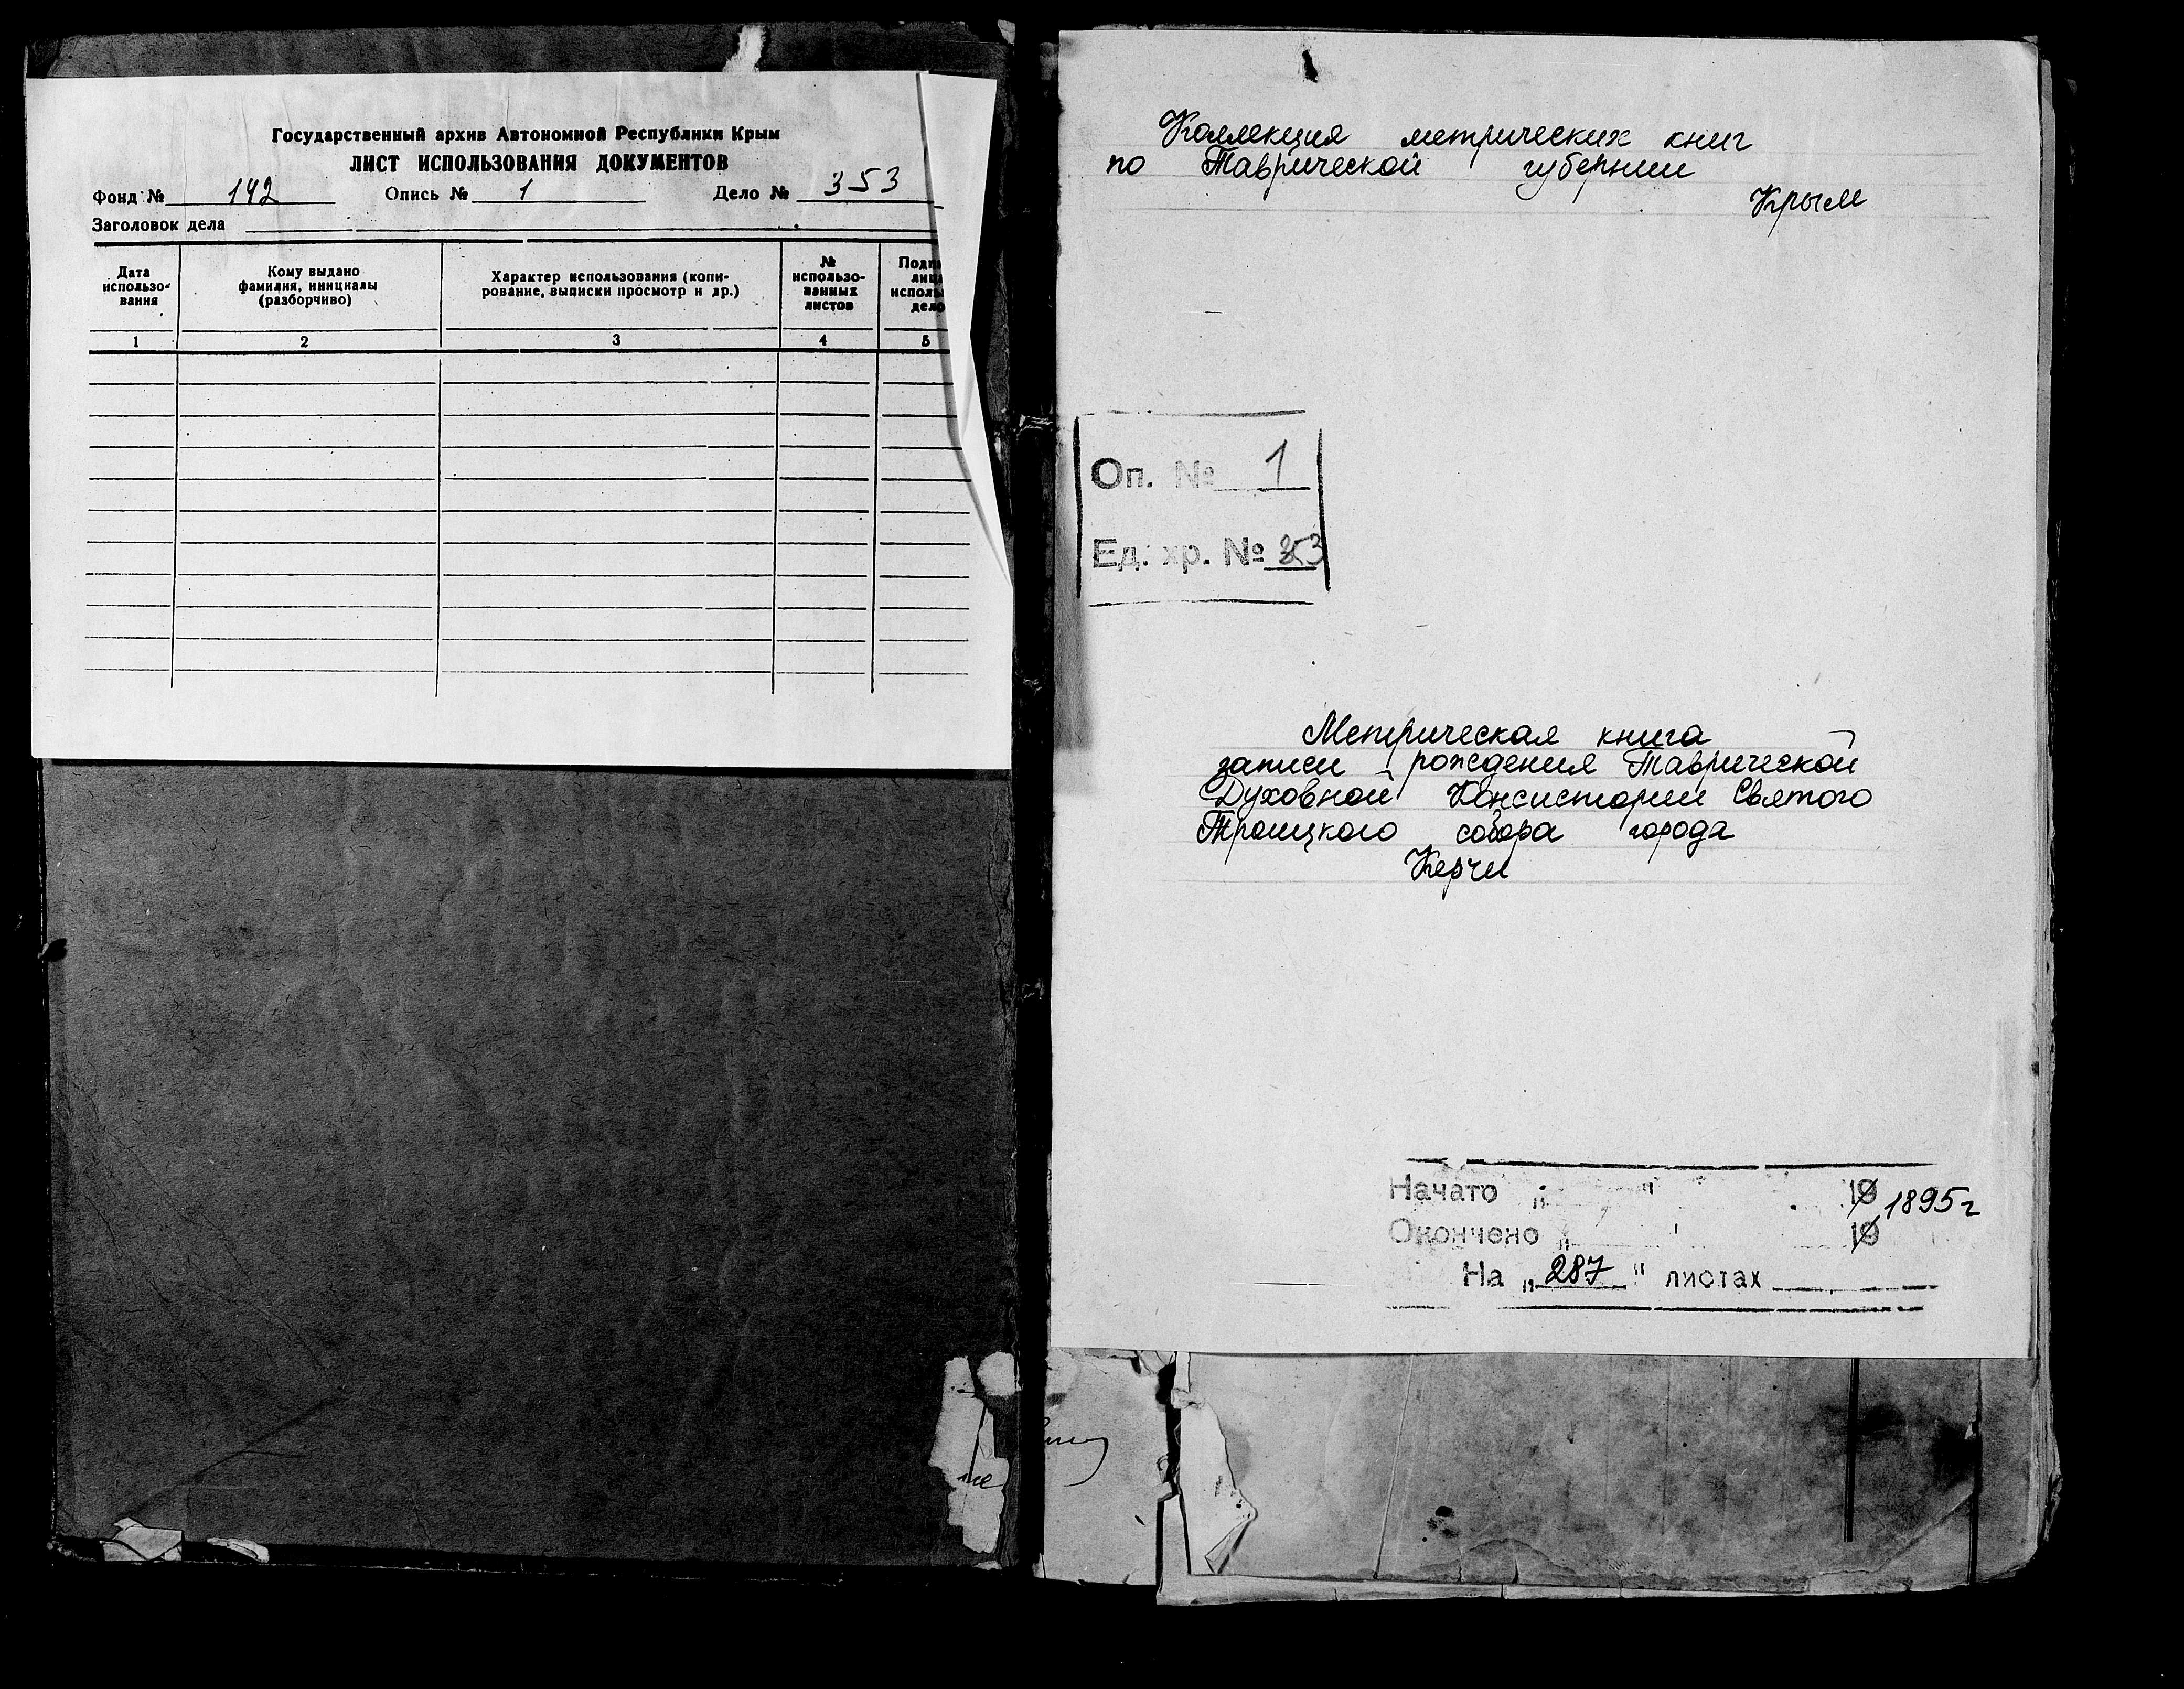 Государственный архив Автономной Республики Крым
ЛИСТ ИСПОЛЬЗОВАНИЯ ДОКУМЕНТОВ
Фонд № 142 Опись № 1 Дело № 353
Заголовок дела
Дата использо-вания
Кому выдано фамилия, инициалы (разборчиво)
Характер использования (копи-рование, выписки просмотр и др.)
№ использо-ванных листов
Подп
лиц
исполь
дело
1 2 3 4 5
Коллекция метрических книг
по Таврической губернии
Крым
Оп. № 1
Ед. хр. № 353
Метрическая книга
записи рождения Таврической
Духовной Консистории Святого
Троицкого собора города
Керчи
Начато „ " 19 1895 г
Окончено „ " 19
На „287" листах